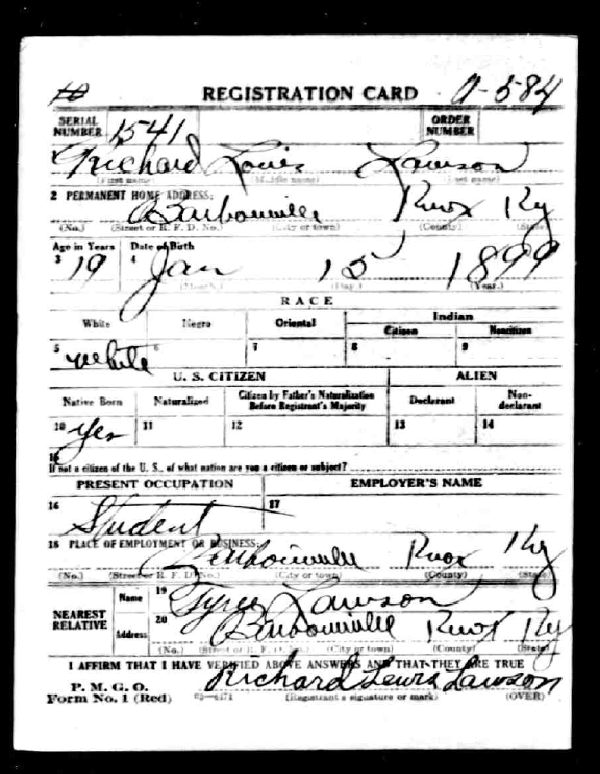 REGISTRATION CARD A-584
SERIAL NUMBER 1541 ORDER NUMBER
1 Richard Louis Lawson
(First name) (Middle name) (Last name)
2 PERMANENT HOME ADDRESS:
Barbourville Knox Ky
(No.) (Street or R. F. D. No.) (City or town) (County) (State)
Age in Years Date of Birth
3 19 4 Jan 15 1899
(Month.) (Day.) (Year.)
RACE
White Negro Oriental Indian
Citizen Noncitizen
5 White 6 7 8 9
U. S. CITIZEN ALIEN
Native Born Naturalized Citizen by Father's Naturalization Before Registrant's Majority Declarant Non-declarant
10 Yes 11 12 13 14
15
If not a citizen of the U. S., of what nation are you a citizen or subject?
PRESENT OCCUPATION EMPLOYER'S NAME
16 Student 17
18 PLACE OF EMPLOYMENT OR BUSINESS:
Barbourville Knox Ky
(No.) (Street or R. F. D. No.) (City or town) (County) (State)
NEAREST RELATIVE Name 19 Tyree Lawson
Address 20 Barbourville Knox Ky
(No.) (Street or R. F. D. No.) (City or town) (County) (State)
I AFFIRM THAT I HAVE VERIFIED ABOVE ANSWERS AND THAT THEY ARE TRUE
P. M. G. O.
Form No. 1 (Red) Richard Lewis Lawson
(Registrant's signature or mark) (OVER)